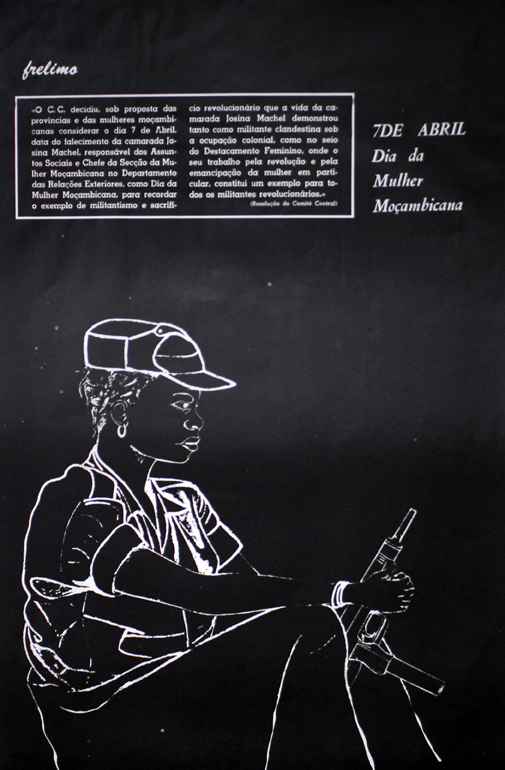 frelimo
«O C. C. decidiu, sob proposta das
províncias e das mulheres moçambi-
canas considerar o dia 7 de Abril,
data do falecimento da camarada Jo-
sina Machel, responsável dos Assun-
tos Sociais e Chefe da Secção da Mu-
lher Moçambicana no Departamento
das Relações Exteriores, como Dia da
Mulher Moçambicana, para recordar
o exemplo de militantismo e sacrifí-
cio revolucionário que a vida da ca-
marada Josina Machel demonstrou
tanto como militante clandestina sob
a ocupação colonial, como no seio
do Destacamento Feminino, onde o
seu trabalho pela revolução e pela
emancipação da mulher em parti-
cular, constitui um exemplo para to-
dos os militantes revolucionários.»
(Resolução do Comité Central)
7DE ABRIL
Dia da
Mulher
Moçambicana